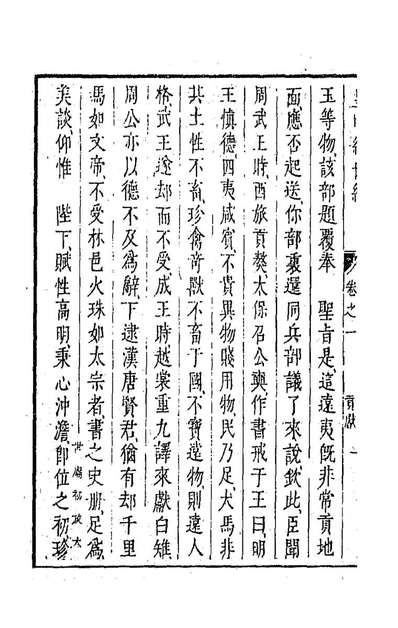 玉等物該部題覆奉　聖旨是這遠夷既非常貢地
面應否起送你部裏還同兵部議了來說欽此臣聞
周武王時西旅貢獒太保召公奭作書戒于王曰明
王慎德四夷咸賓不貴異物賤用物民乃足犬馬非
其土性不畜珍禽奇獸不畜于國不寶遠物則遠人
格武王遂却而不受成王時越裳重九譯來獻白雉
周公亦以德不及為辭下逮漢唐賢君猶有却千里
馬如文帝不受林邑火珠如太宗者書之史冊足為
美談仰惟　陛下賦性高明秉心沖澹即位之初珍
卷之一
貢獻
一